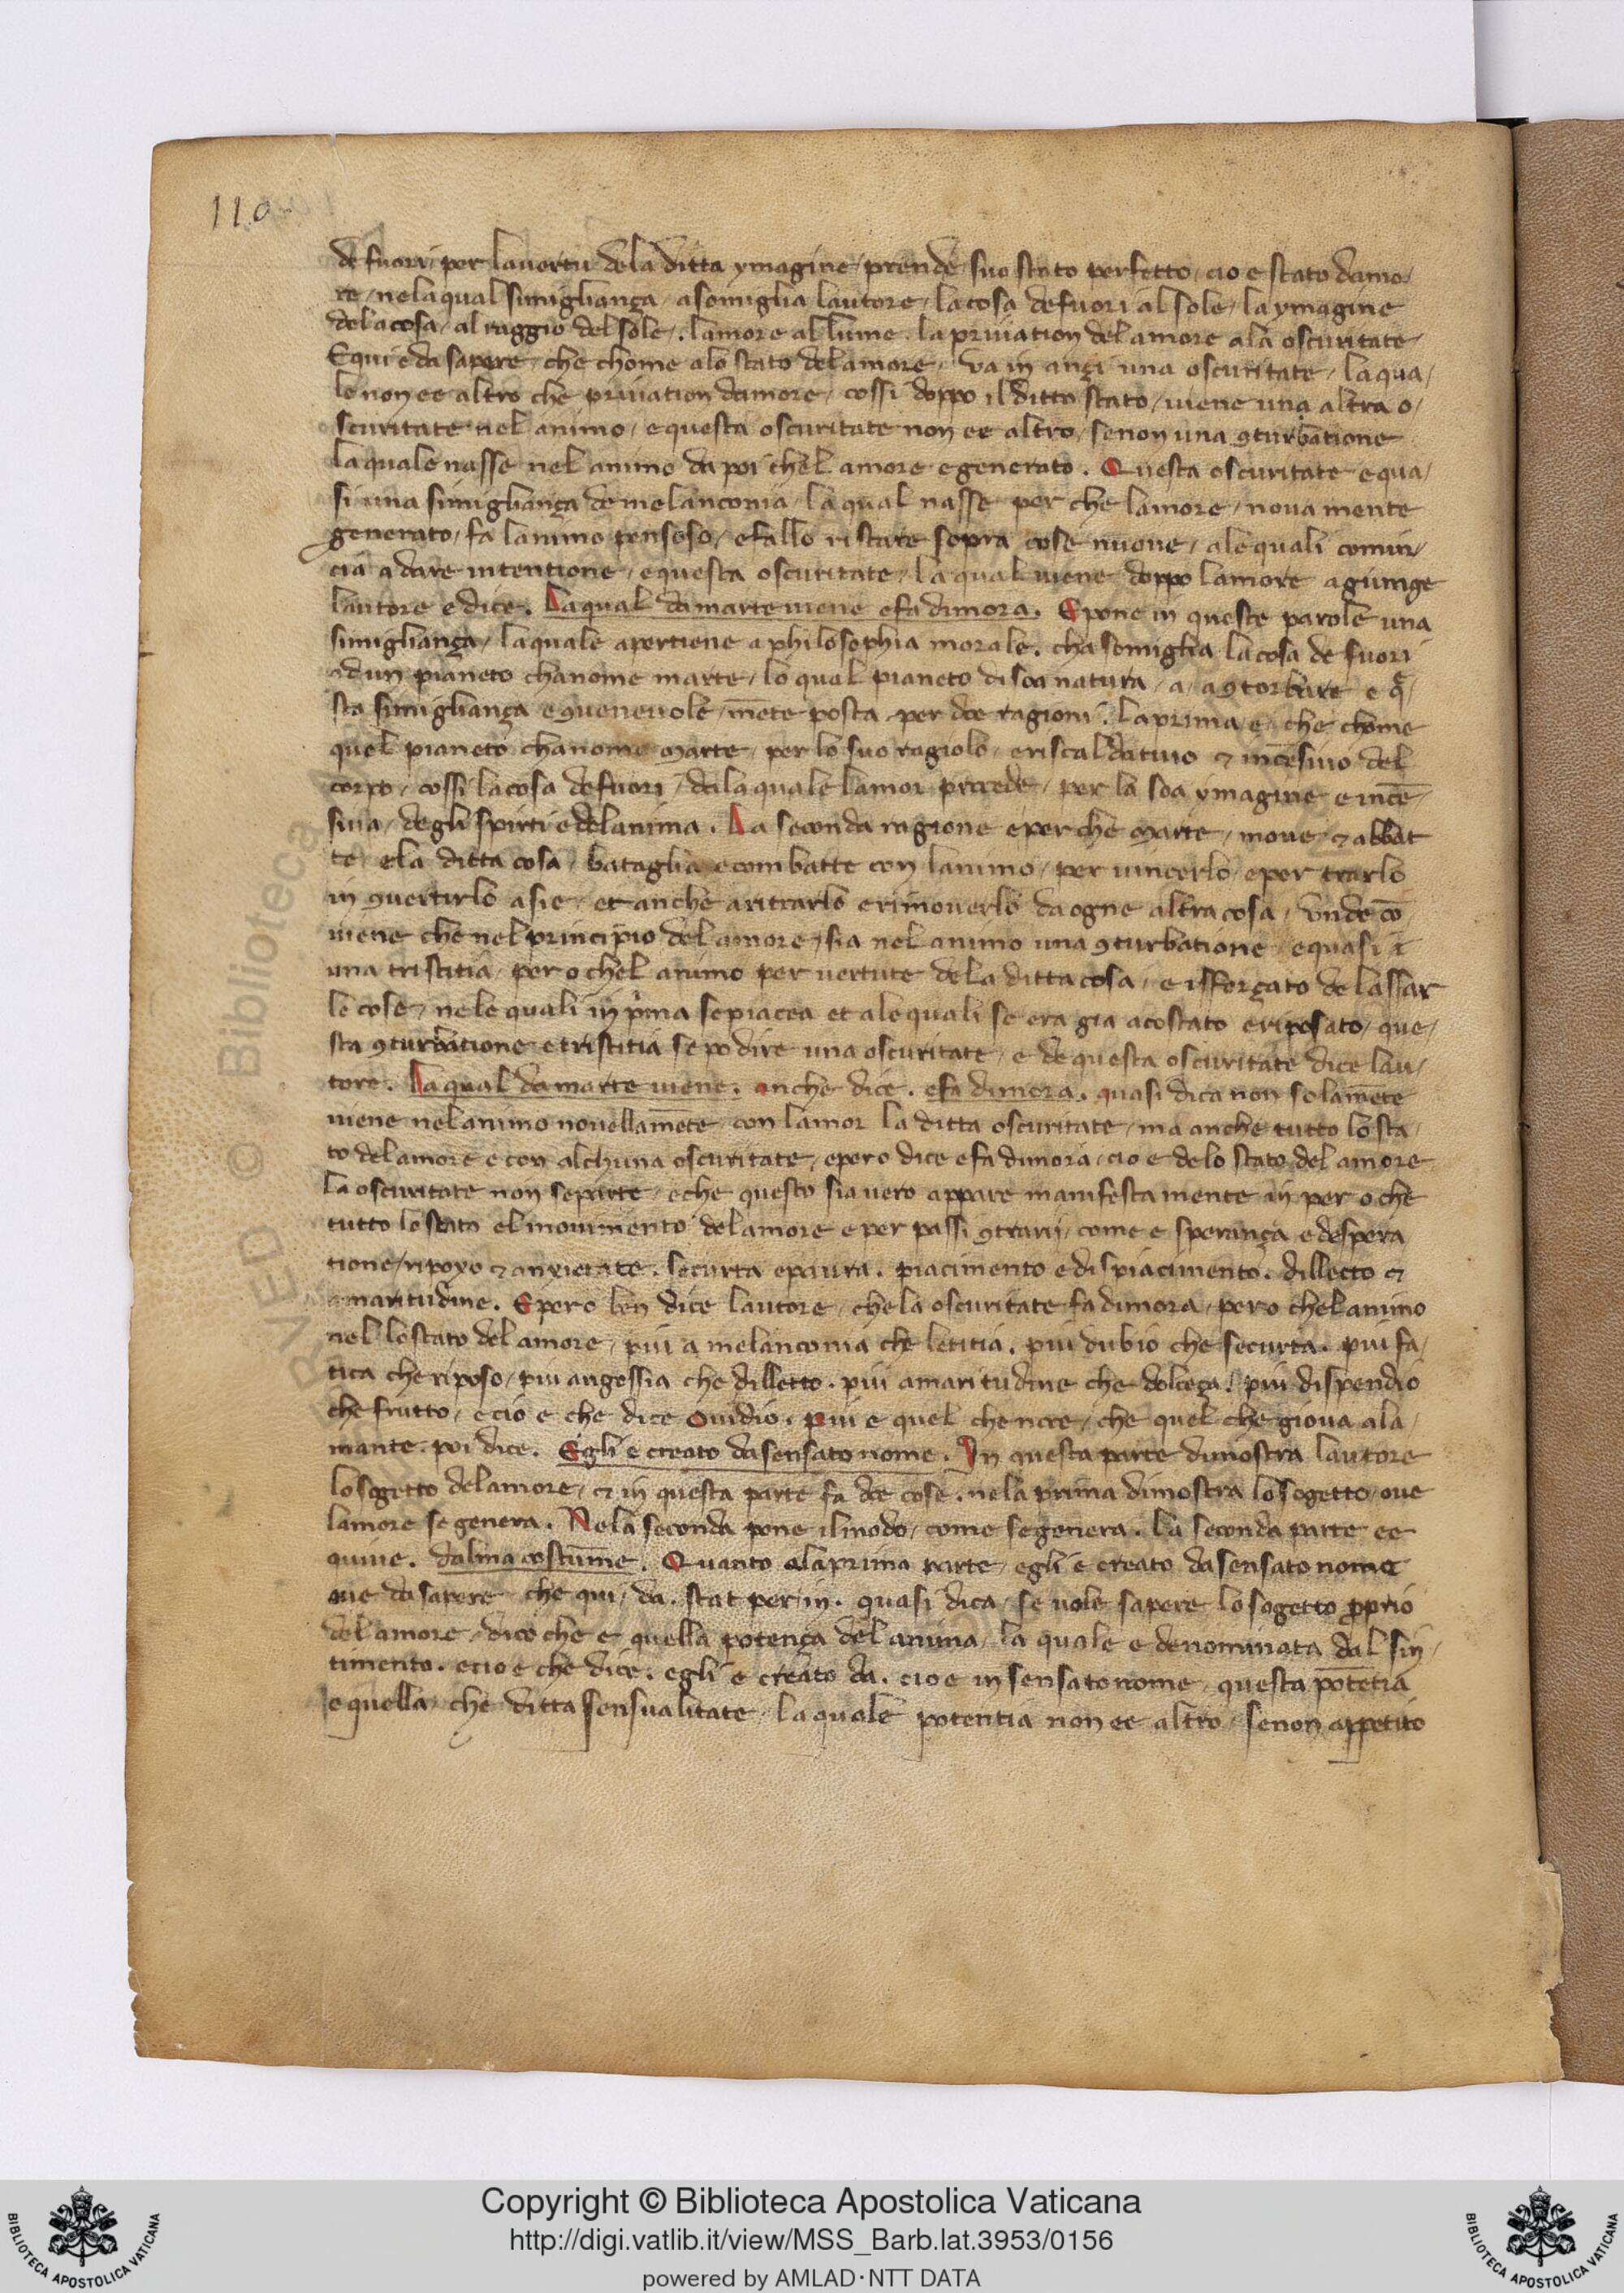 110
de fuori / per la uertu dela ditta ymagine / prende suo stato perfetto / cio e stato damo /
re / nelaqual simigliança / asomiglia lautore / la cosa defuori al sole / la ymagine
delacosa / al raggio del sole / . lamore al lume . la priuation del amore ala oscuritate /
Equi e da sapere / che chome alo stato del amore / ua in ançi una oscuritate / la qua /
le non ee altro che priuation damore / cossi doppo il ditto stato / uiene una altra o /
scuritate nel animo / e questa oscuritate non ee altro / senon una ꝯturbatione
laquale nasse nel animo da poi chel amore e generato . Questa oscuritate e qua /
si una simigliança de melanconia / la qual nasse per che lamore / noua mente
generato / fa lanimo pensoso / e fallo ristare sopra cose nuoue / ale quali comin /
cia a dare intentione / e questa oscuritate / la qual uiene doppo lamore agiunge
lautore e dice . La qual da marte uiene e fa dimora . Epone in queste parole una
simigliança / laquale apertiene a philosophia morale . cha somiglia la cosa de fuori
ad un pianeto cha nome marte / lo qual pianeto di soa natura / a / a ꝯtorbare e q̃ /
sta simigliança e ꝯueneuole / mēte posta per doe ragioni . La prima e / che chome
quel pianeto cha nome marte / per lo suo ragiolo / e riscaldatiuo ⁊ incēsiuo del
corpo / cossi la cosa defuori / dala quale lamor procede / per la soa ymagine e incē /
siua / degli spirti e delanima . La seconda ragione e per che marte / moue ⁊ abbat
te / e la ditta cosa / bataglia e combatte con lanimo / per uincerlo / e per trarlo
in ꝯuertirlo a sie / et anche aritrarlo e rimouerlo da ogne altra cosa / Unde cō
uiene che nel principio del amore / sia nel animo una ꝯturbatione / e quasi ī
una tristitia / pero chel animo per uertute dela ditta cosa / e isforçato de lassar
le cose / nele quali in pͥma se piacea et ale quali se era gia acostato e riposato / que /
sta ꝯturbatione e tristitia se po dire una oscuritate / e de questa oscuritate dice lau /
tore . La qual da marte uiene . anche dice . e fa dimora . quasi dica non solamēte
uiene nel animo nouellamēte con lamor la ditta oscuritate / ma anche tutto lo sta /
to del amore e con alchuna oscuritate / e pero dice e fa dimora / cio e de lo stato del amore
la oscuritate non se parte / e che questo sia uero appare manifesta mente in per o che
tutto lo stato el mouimento del amore e per passi ꝯtrarij / come e sperança e despera
tione / ripoxo ⁊ anxietate . secura e paura . piacimento e dispiacimento . dillecto ⁊
amaritudine . E pero ben dice lautore / che la oscuritate fa dimora / pero chel animo
nel lo stato del amore / piu a melanconia che letitia . piu dubio che securta . piu fa /
tica che riposo / piu angossia che dilletto . piu amaritudine che dolceça . piu dispendio
che frutto / e cio e che dice Ouidio . Piu e quel che noce / che quel che gioua ala /
mante . poi dice . Egli e creato da sensato nome . In questa parte dimostra lautore
lo sogetto del amore / ⁊ in questa parte fa doe cose . nela prima dimostra lo sogetto / oue
lamore se genera . Nela seconda pone il modo / come se genera . La seconda parte ee
quiue . dalma costume . Quanto ala prima parte / egli e creato da sensato nome
oue da sapere / che qui / da . stat per in . quasi dica / se uole sapere lo sogetto ꝓprio
del amore / dico che e quella potença del anima / la quale e denominata dal sin /
timento . e cio e che dice . egli e creato da . cio e in sensato nome / questa potētia
e quella / che ditta sensualitate / la quale potentia non ee altro / senon appetito
© Biblioteca
Copyright © Biblioteca Apostolica Vaticana
http://digi.vatlib.it/view/MSS_Barb.lat.3953/0156
powered by AMLAD·NTT DATA
BIBLIOTECA APOSTOLICA VATICANA
BIBLIOTECA APOSTOLICA VATICANA